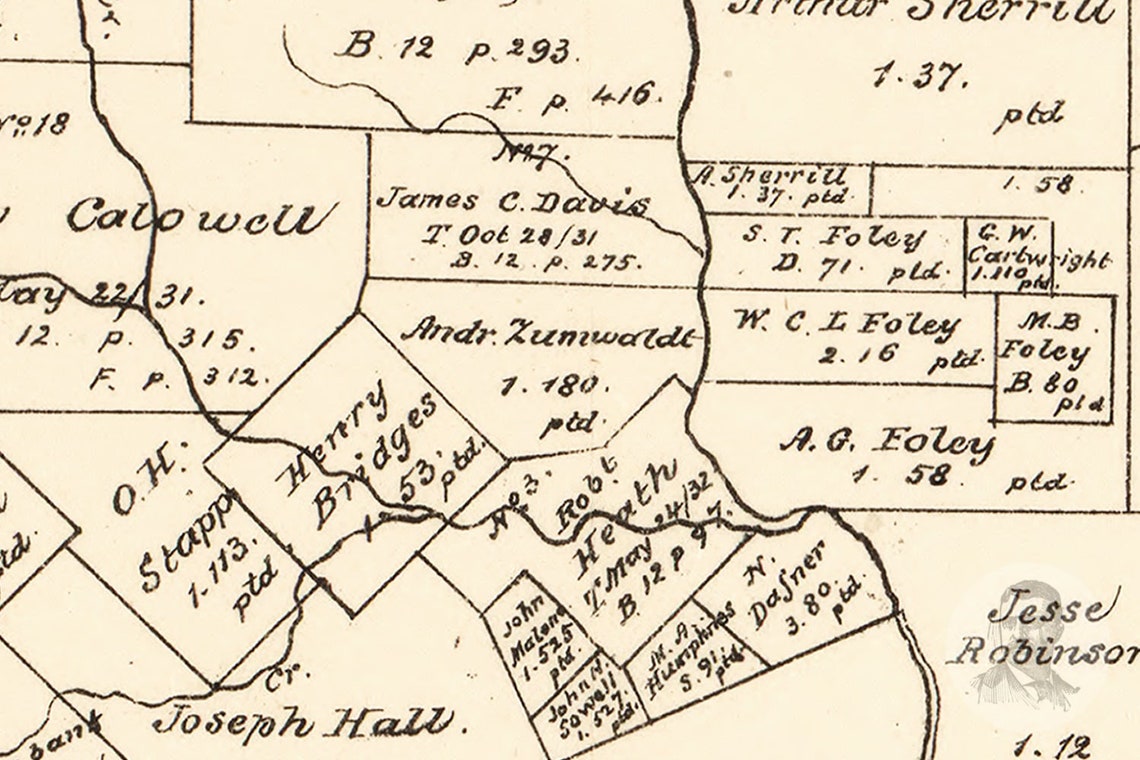 B. 12 p. 293.
F. p. 416.
Arthur Sherrill
1.37.
ptd
No. 18
No 7.
James C. Davis
T. Oct 28/31
B. 12. p. 275.
A. Sherrill
1. 37. ptd.
1. 58.
S. T. Foley
D. 71. ptd.
G. W.
Cartwright
1.110
ptd.
Calowell
22/31.
12. p. 315.
F. p. 312.
Andr. Zumwaldt
1. 180.
ptd.
W. C. L Foley
2. 16 ptd.
M. B.
Foley
B. 80
ptd
A. G. Foley
1. 58 ptd.
Henry
Bridges
1. 53.
ptd.
O. H.
Stapp
1. 113.
ptd
No 3.
Robt.
Heath
T. May 24/32
B 12 p 97.
John
Malone
1. 525
ptd.
John H.
Sowell
1. 527.
ptd.
M. A.
Humphries
5. 91.
ptd.
N.
Dafner
3. 80.
ptd.
Jesse
Robinson
1. 12
Cr.
Joseph Hall.
bank